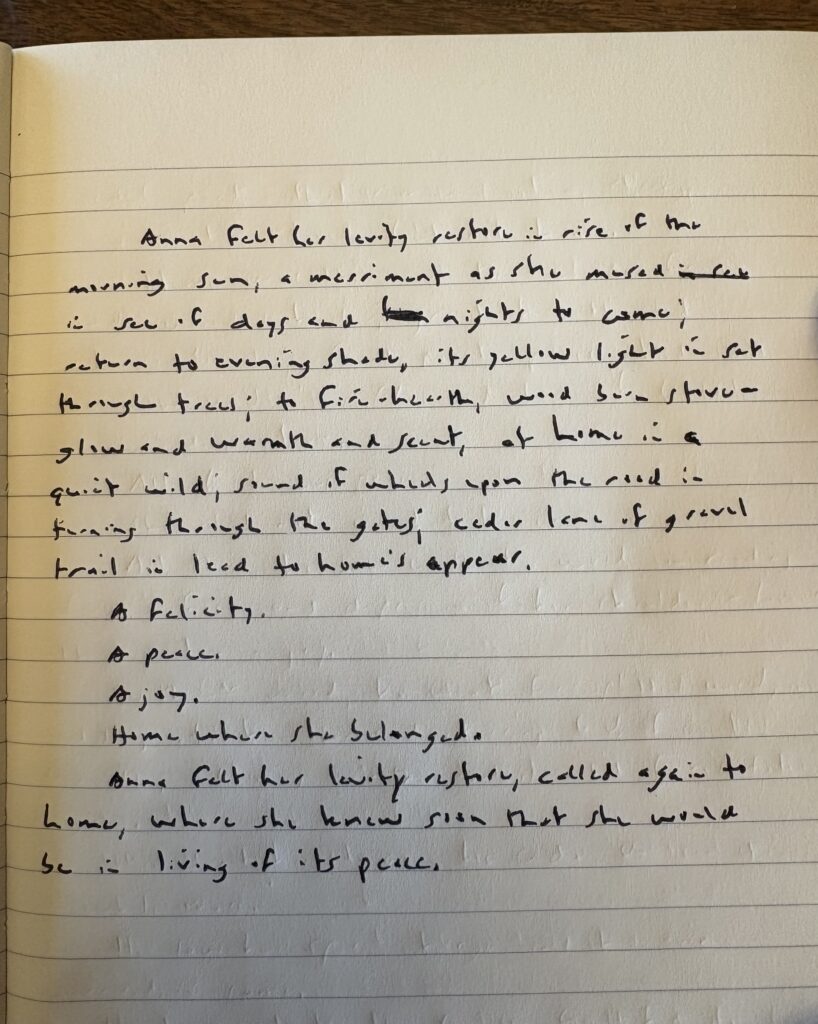 Anna felt her levity restore in rise of the
morning sun, a merriment as she mused in see
in see of days and nights to come;
return to evening shade, its yellow light in set
through trees; to fire-hearth, wood burn stove-
glow and warmth and scent, at home in a
quiet wild; sound of wheels upon the road in
turning through the gates; cedar lane of gravel
trail in lead to home's appear.
A felicity.
A peace.
A joy.
Home where she belonged.
Anna felt her levity restore, called again to
home, where she knew soon that she would
be in living of its peace.